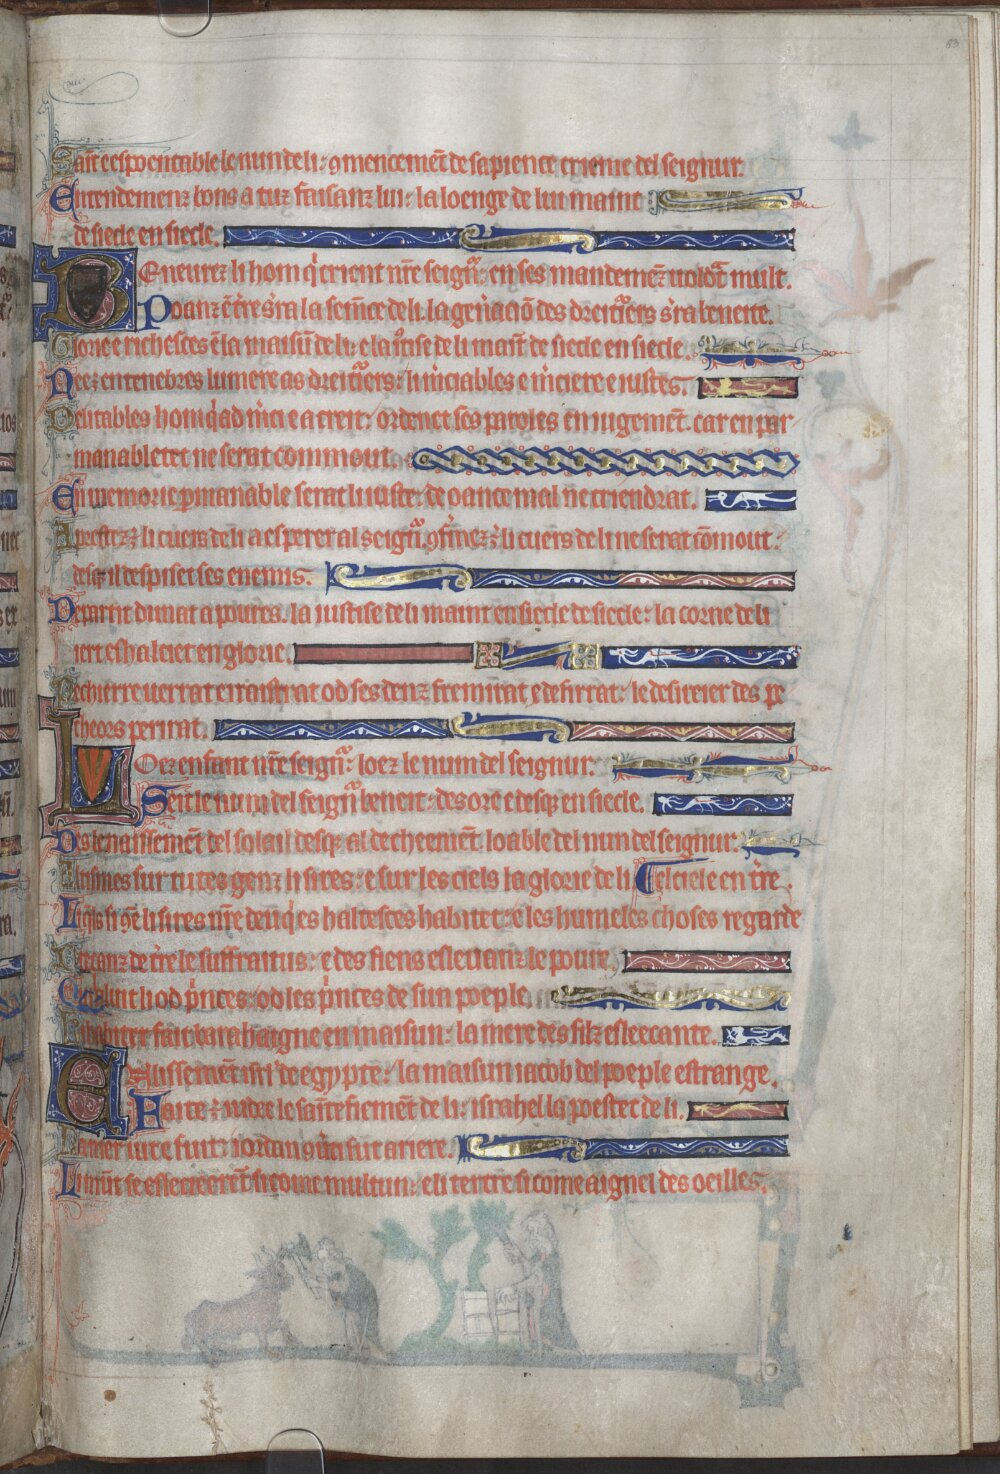 83
Saint e espoentable le nun de li: 9mencemēt de sapience crieme del seignur.
Entendemenz bons a tuz faisanz lui: la loenge de lui maint
de siecle en siecle.
Beneurez li hom q̄ crient nr̄e seign̄: en ses mandemēz uoldr̄at mult.
Poanz ē tr̄e s̄ra la semēce de li. la gen̄aciō des dreitr̄ers s̄ra beneite.
Glorie e richesces ē la maisū de li: e la iustise de li maīt de siecle en siecle.
Neez en tenebres lumiere as dreiturers: li m̄ciables e m̄ciere e iustes.
Delitables hom q̄ ad m̄ci e a crent: ordenet ses paroles en iugement. car en par
manabletet ne serat commout.
En memorie pmanable serat li iuste: de oance mal ne criendrat.
Aprestez li cuers de li a esperer al seign̄. 9fermez li cuers de li ne serat cōmout:
desq; il despiset ses enemis.
Departit dunat a poures. la iustise de li maint en siecle de siecle: la corne de li
iert eshalciet en glorie.
Pechierre uerrat e iraistrat od ses denz fremirat e defirrat: le desireier des pe
cheors perirat.
Loez enfant nr̄e seign̄: loez le num del seignur.
Seit le num del seign̄ beneit: des ore e desq; en siecle.
Des le naissemēt del soleil desq; al decheemēt. loable del nun del seignur.
Altismes sur tutes genz li sires: e sur les ciels la glorie de li. El ciel e en tr̄e.
Liq̄ls si 9e li sires nr̄e deu q̄ es haltesces habitet: e les humeles choses regarde
de tr̄e le suffraitus: e des fiens esleuanz le poure.
li od p̄nces: od les p̄nces de sun poeple.
habiter fait barahaigne en maisun: la mere des filz esleecante.
El issement isrł de egypte: la maisun iacob del poeple estrange.
Faite est iudee le saintefiement de li: israhel la poestet de li.
La mer uit e fuit: iordan 9u'ti fut ariere.
Li munt se esleecerēt si come multun: e li tertre si come aignel des oeilles.